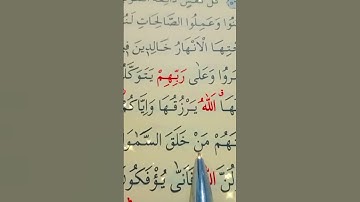 كُلُّ نَفْسٍ ذَائِقَةُ الْمَوْتِ
نُوا وَعَمِلُوا الصَّالِحَاتِ
تَحْتِهَا الْاَنْهَارُ خَالِدِينَ
بَرُوا وَعَلٰى رَبِّهِمْ يَتَوَكَّلُ
هَا اَللّٰهُ يَرْزُقُهَا وَاِيَّاكُمْ
تَهُمْ مَنْ خَلَقَ السَّمٰوَا
لُنَّ اللّٰهُ فَاَنّٰى يُؤْفَكُونَ